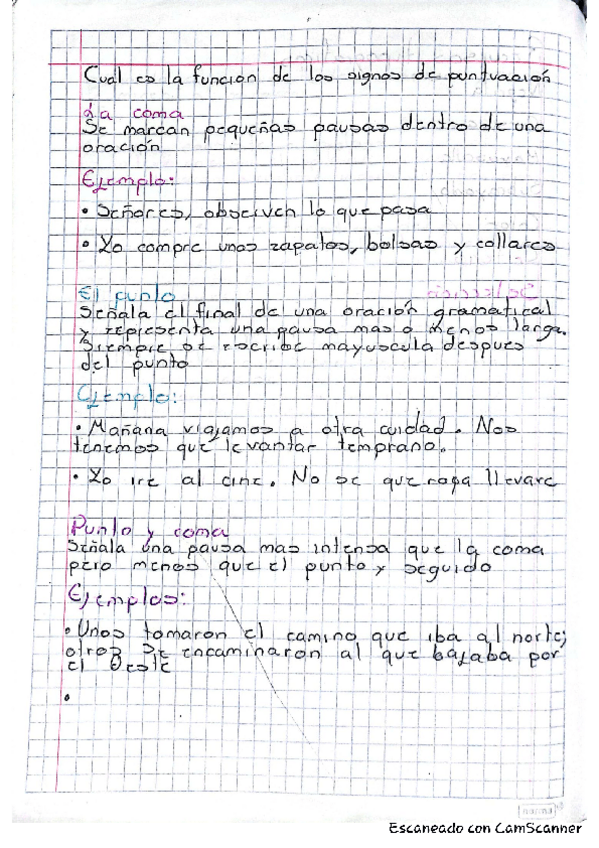 Cual es la función de los signos de puntuación
La coma
Se marcan pequeñas pausas dentro de una
oración
Ejemplo:
• Señores, observen lo que pasa
• Yo compre unos zapatos, bolsas y collares
El punto
Señala el final de una oración gramatical
y representa una pausa mas o menos larga.
Siempre se escribe mayuscula despues
del punto
Ejemplo:
• Mañana viajamos a otra cuidad. Nos
tenemos que levantar temprano.
• Yo ire al cine. No se que ropa llevare
Punto y coma
Señala una pausa mas intensa que la coma
pero menos que el punto y seguido
Ejemplos:
• Unos tomaron el camino que iba al norte;
otros se encaminaron al que bajaba por
el Oeste
•
norma
Escaneado con CamScanner